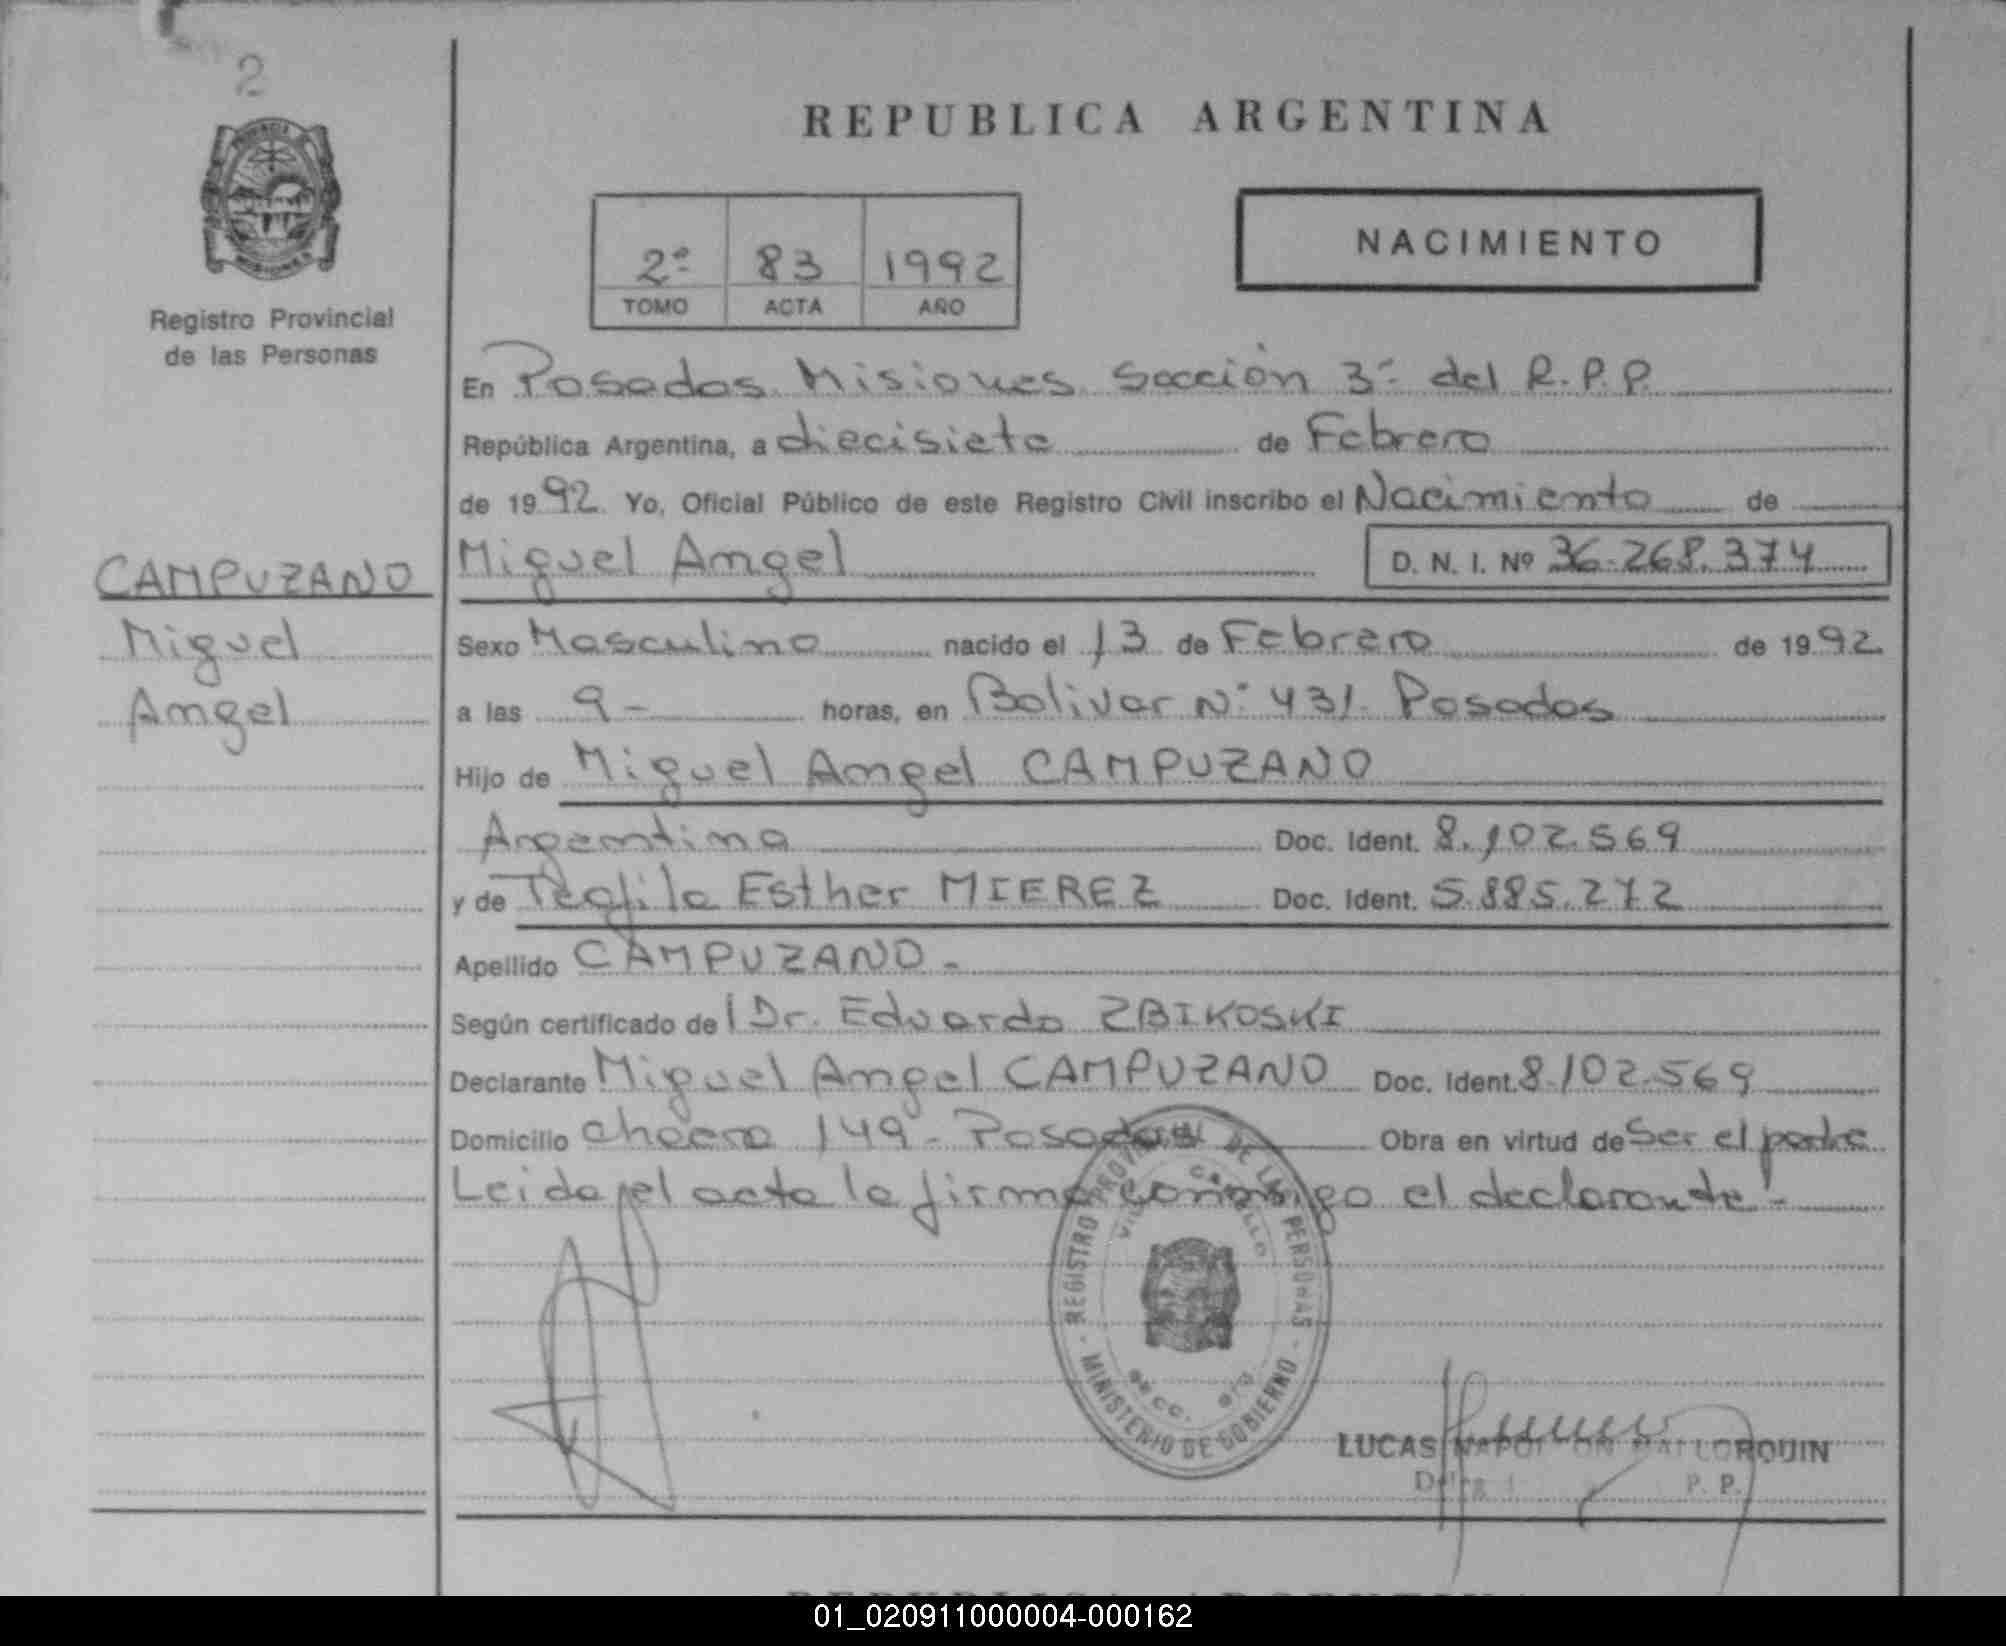 2
REPUBLICA ARGENTINA
NACIMIENTO
2º 83 1992
TOMO ACTA AÑO
Registro Provincial
de las Personas
En Posadas Misiones Sección 3ª del R.P.P.
República Argentina, a diecisiete de Febrero
de 1992 Yo, Oficial Público de este Registro Civil inscribo el Nacimiento de
CAMPUZANO
Miguel
Angel
Miguel Angel D. N. I. Nº 36.268.374
Sexo Masculino nacido el 13 de Febrero de 1992
a las 9- horas, en Bolivar Nº 431. Posadas
Hijo de Miguel Angel CAMPUZANO
Argentino Doc. Ident. 8.102.569
y de Teofila Esther MIEREZ Doc. Ident. 5.885.272
Apellido CAMPUZANO -
Según certificado del Dr. Eduardo ZBIKOSKI
Declarante Miguel Angel CAMPUZANO Doc. Ident. 8.102.569
Domicilio 149 - Posadas Obra en virtud de Ser el padre
Leida el acta la firma conmigo el declarante -
REGISTRO PROVINCIAL DE LAS PERSONAS
MINISTERIO DE GOBIERNO
LUCAS NAPOLEON MALLORQUIN
P. P.
01_020911000004-000162